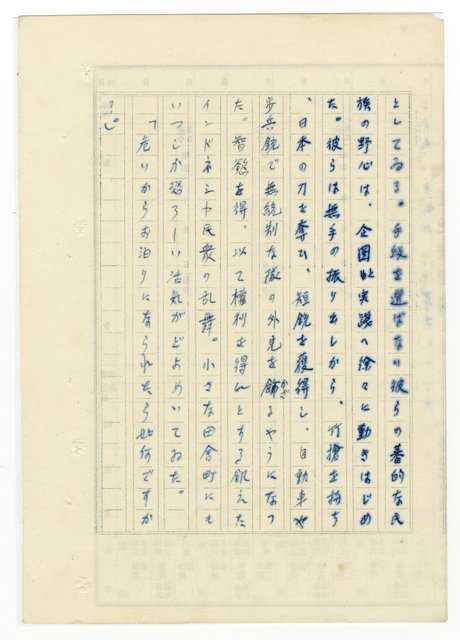 としてゐる。手段を選ばない彼らの蕃的な民
族の野心は、企図から実践へ徐々に動きはじめ
た。彼らは無手の振り出しから、竹槍を持ち
、日本の刀を奪ひ、短銃を獲得し、自動車や
歩兵銃で無統制な隊の外見を飾るやうになつ
た。智慾を得、以て権利を得んとする飢えた
インドネシヤ民衆の乱舞。小さな田舎町にも
いつしか恐ろしい活気がどよめいてゐた。
「危いからお泊りになられたら如何ですか
…」